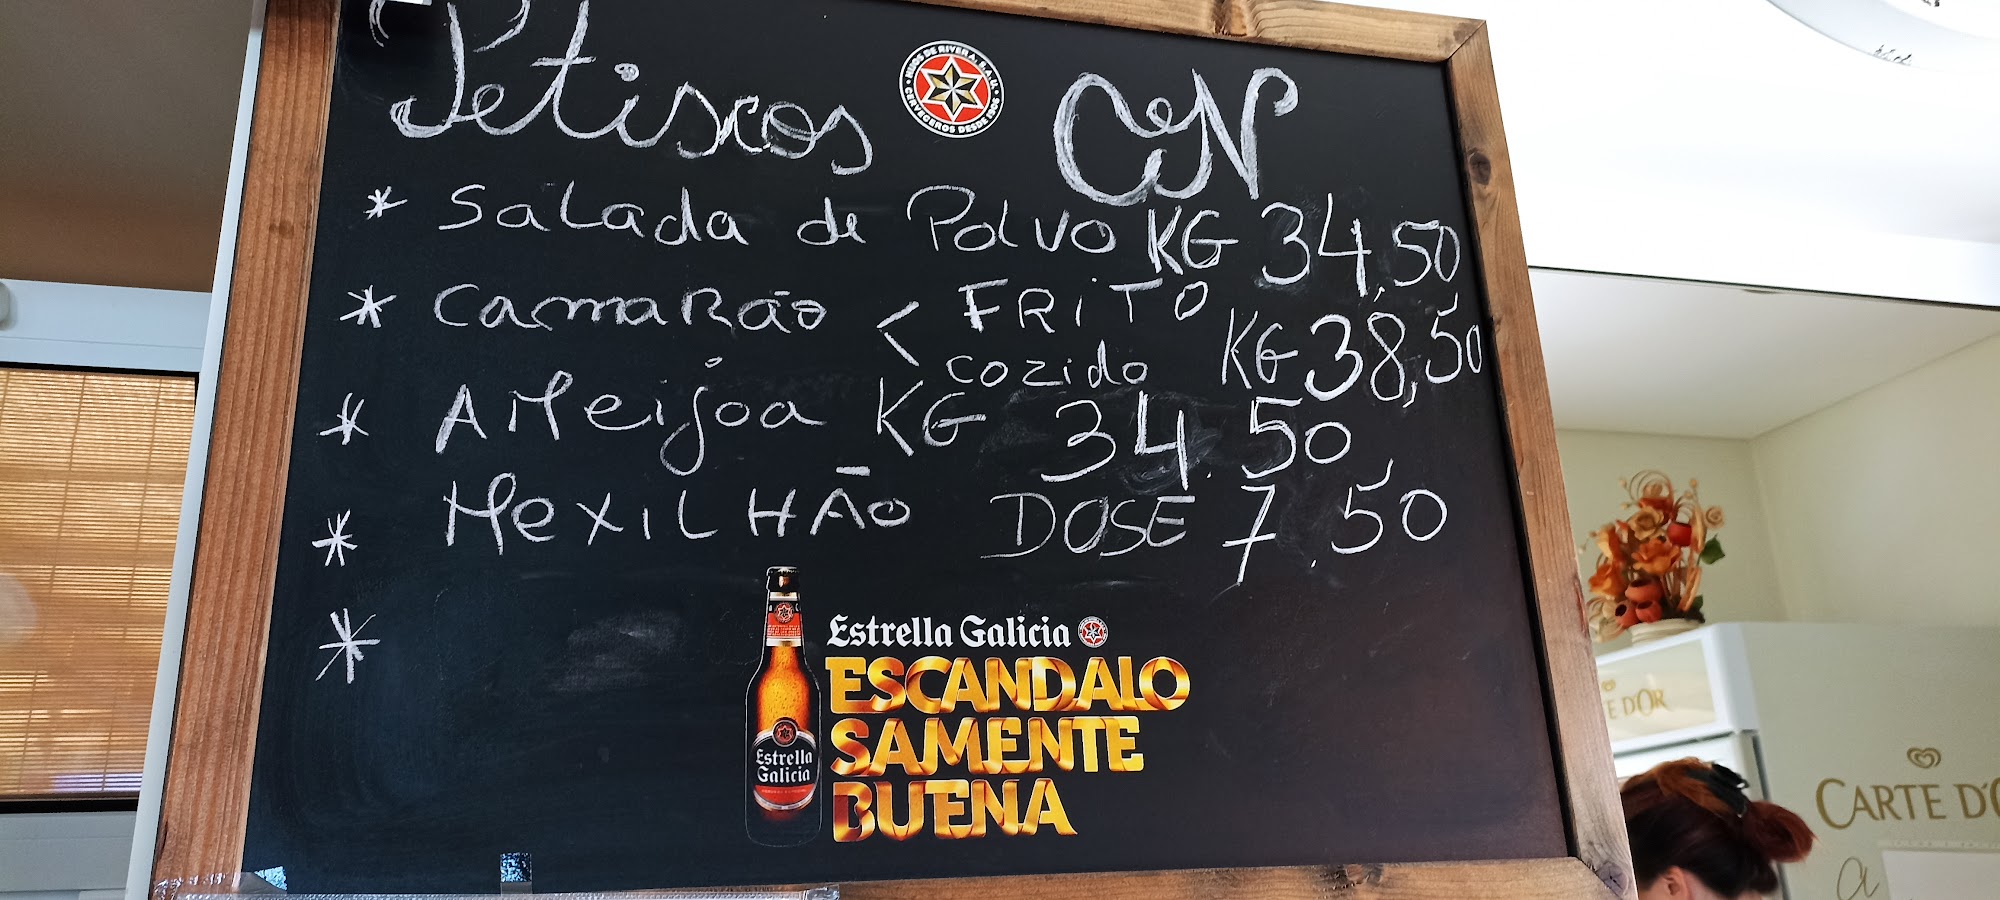 Petiscos CN
HIJOS DE RIVERA, S.A.U.
CERVECEROS DESDE 1906
* Salada de Polvo KG 34,50
* Camarão < FRITO
cozido KG 38,50
* AMeijoa KG 34.50
* MexiLHÃO DOSE 7.50
*
Estrella Galicia
ESCANDALO
SAMENTE
BUENA
Estrella
Galicia
E D'OR
CARTE D'O